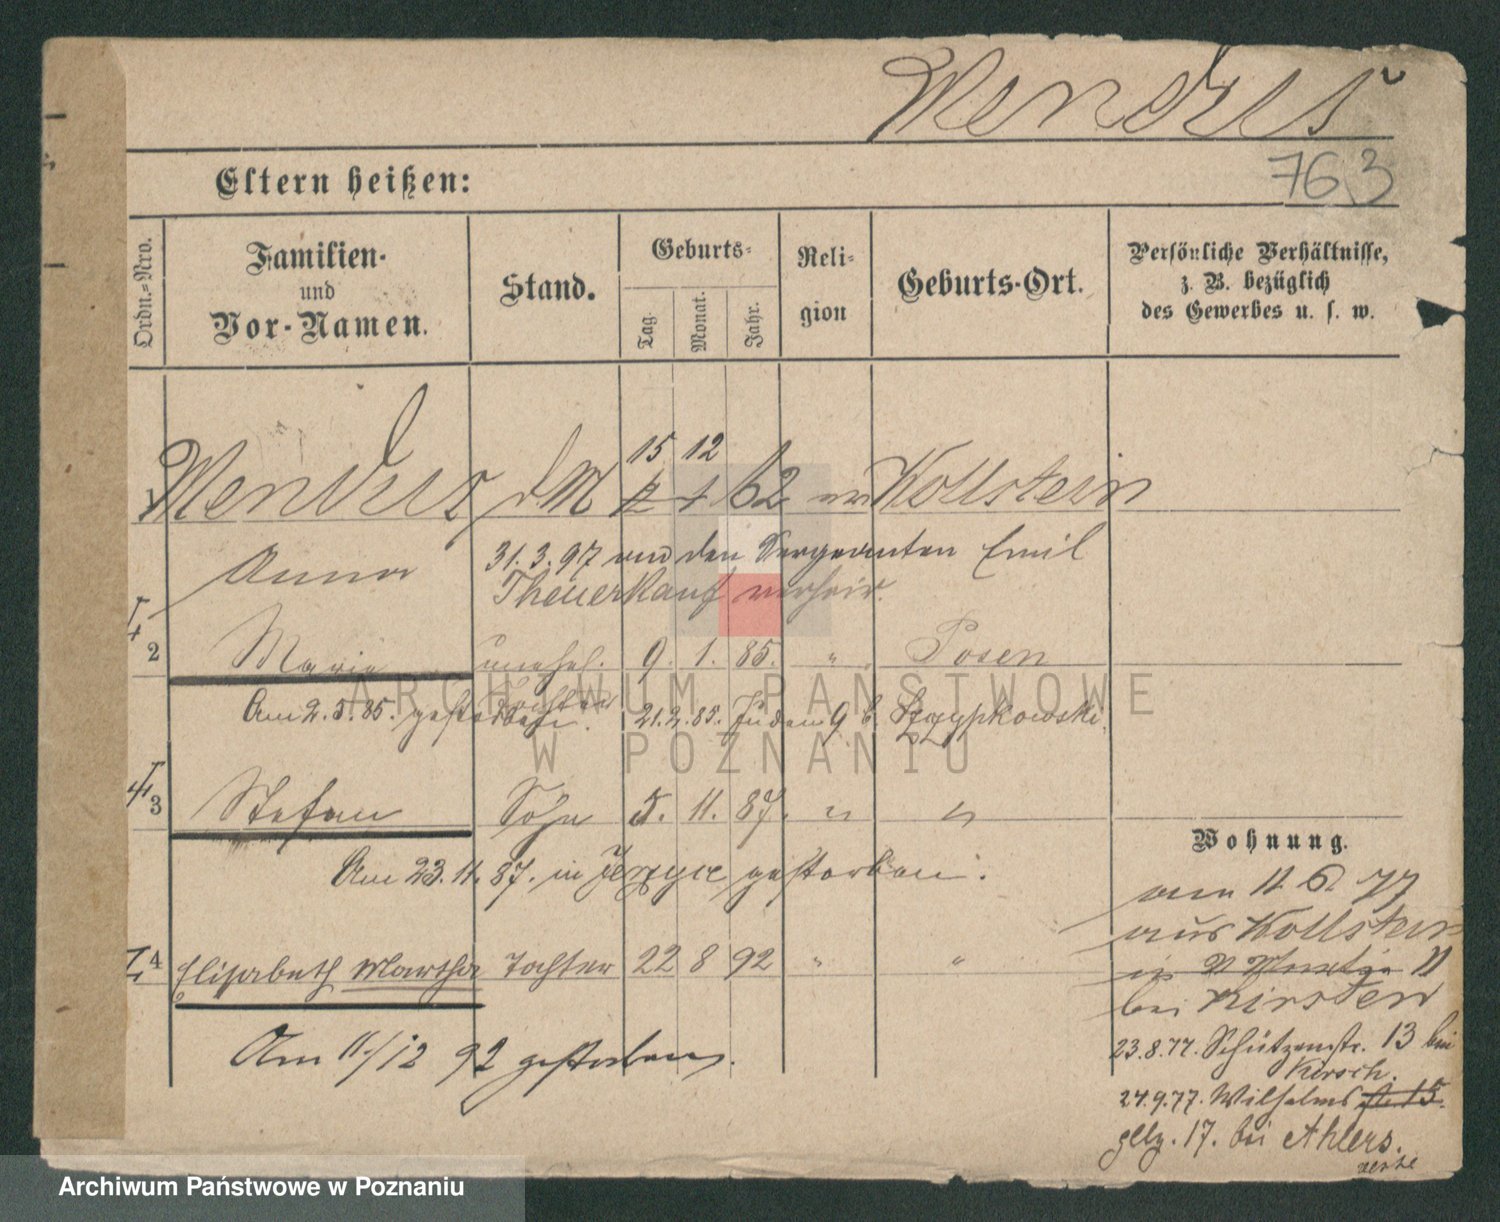 Mendris
763
Eltern heißen:
Ordn.-Nro.
Familien-
und
Vor-Namen.
Stand.
Geburts-
Tag.
Monat.
Jahr.
Reli-
gion
Geburts-Ort.
Persönliche Verhältnisse,
z. B. bezüglich
des Gewerbes u. s. w.
15 12
Mendris, d M 62 Wollstein
Anna
31.3.97 an den Sergeanten Emil
Theuerkauf verheir.
2 Maria unehel. 9. 1. 85. " Posen
Tochter
Am 2.5.85. gestorben. 21.2.85. Juden 9 b. Szypkowski.
3 Stefan Sohn 5. 11. 87. " "
Am 23.11.87. in gestorben.
4 Elisabeth Martha Tochter 22 8 92 " "
Am 11/12 92 gestorben.
Wohnung.
am 11.6.77
aus Wollstein
in St Martin 11
bei Kirsten
23.8.77. Schützenstr. 13 bei
Kirsch.
24.9.77. Wilhelms str. 15.
17. bei Ahlers.
ARCHIWUM PAŃSTWOWE
W POZNANIU
Archiwum Państwowe w Poznaniu